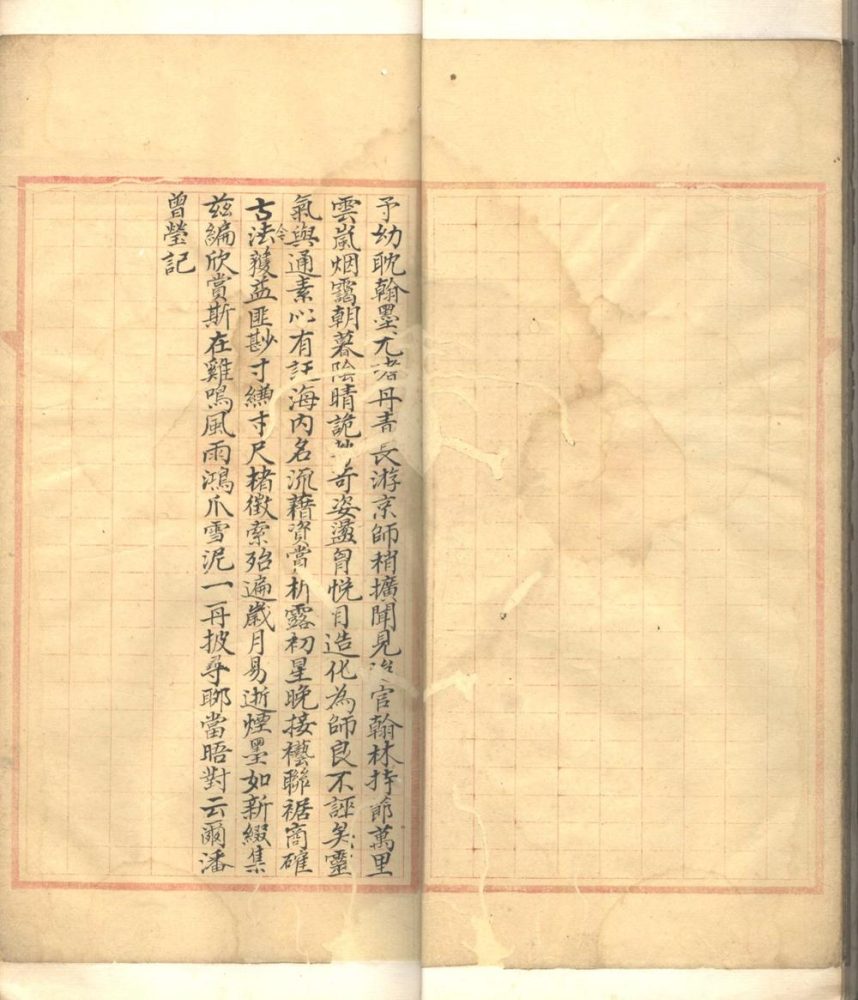 予幼耽翰墨尤耆丹青長游京師稍擴聞見洎官翰林持節萬里
雲嵐烟靄朝暮陰晴詭 奇姿盪胷悅目造化為師良不誣矣靈
氣與通素心有託海內名流藉資賞析露初星晚接櫼聯裾商確
古法今籍益匪尠寸縑尺楮徵索殆遍歲月易逝煙墨如新綴集
茲編欣賞斯在雞鳴風雨鴻爪雪泥一再披尋聊當晤對云爾潘
曾瑩記